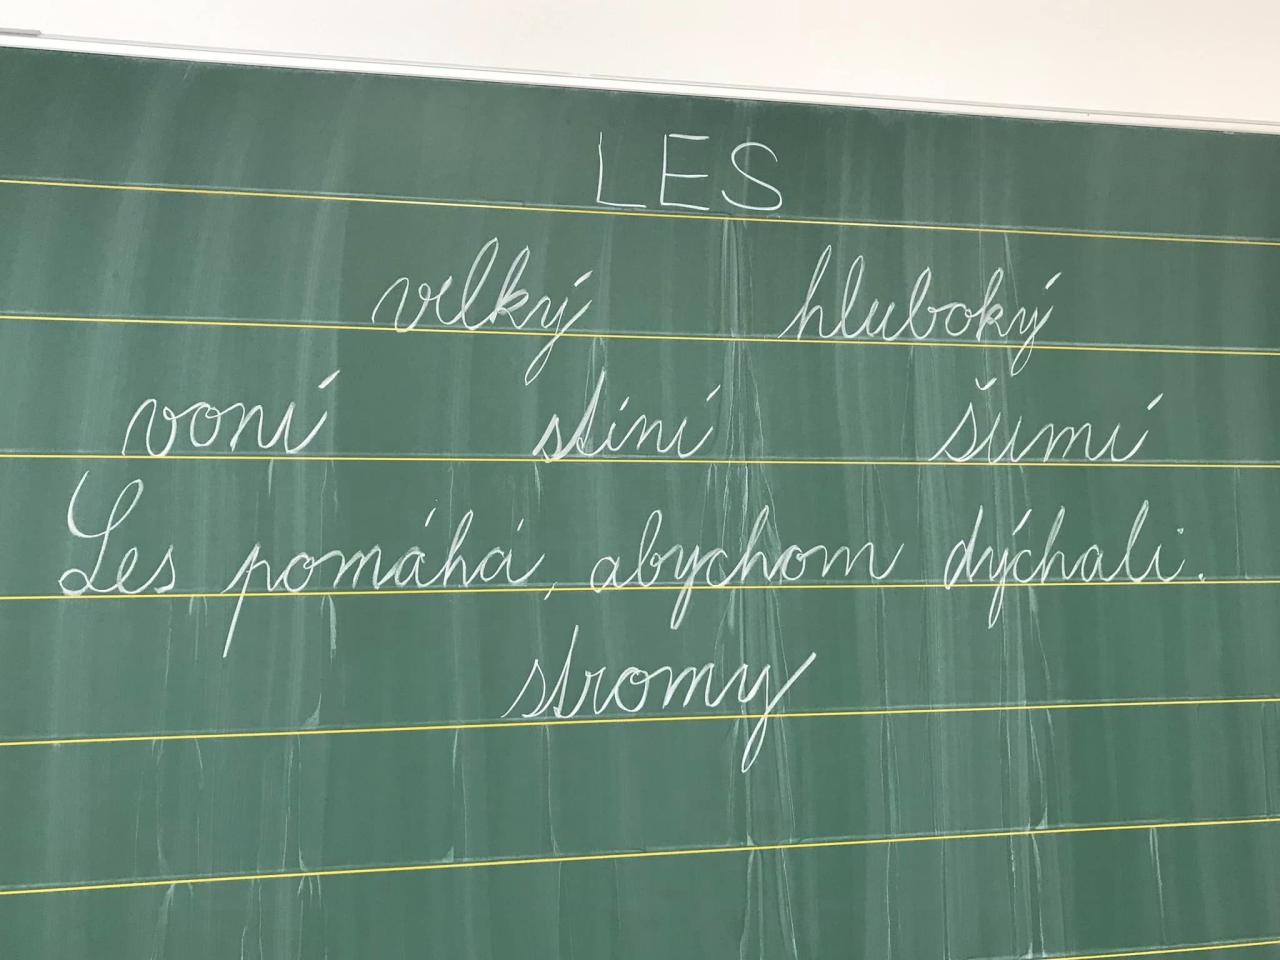 LES
velký hluboký
voní stíní šumí
Les pomáhá, abychom dýchali.
stromy